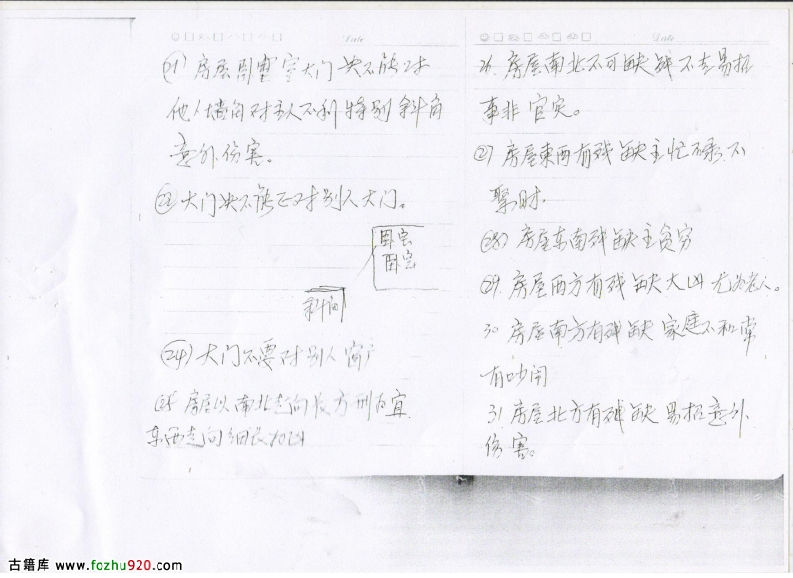 (21) 房屋卧室大门决不能对
他人墙角对主人不利特别斜角
意外伤害。
(22) 大门决不能正对别人大门。
卧室
卧室
斜角
(24) 大门不要对别人窗户
25 房屋以南北走向长方形为宜
东西走向细长为凶
Date
26. 房屋南北不可缺残不去易招
事非官灾。
(27) 房屋東西有残缺主忙碌不
聚财.
(28) 房屋东南残缺主贫穷
(29). 房屋西方有残缺大凶尤为老人。
30 房屋南方有残缺家庭不和常
有吵闹
31. 房屋北方有残缺易招意外
伤害。
古籍库 www.fozhu920.com